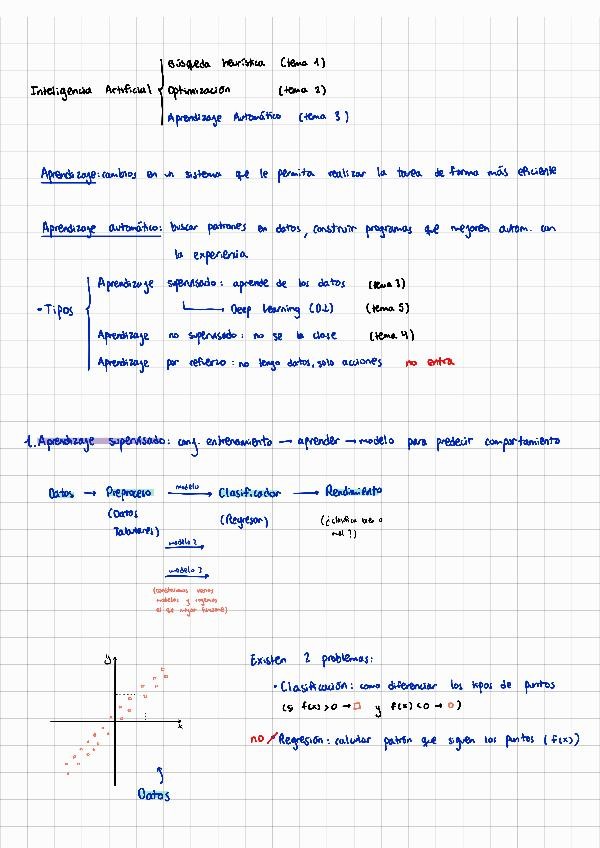 Búsqueda heurística (tema 1)
Inteligencia Artificial Optimización (tema 2)
Aprendizaje Automático (tema 3)
Aprendizaje: cambios en un sistema que le permita realizar la tarea de forma más eficiente
Aprendizaje automático: buscar patrones en datos, construir programas que mejoren autom. con
la experiencia
Aprendizaje supervisado: aprende de los datos (tema 3)
• Tipos
Deep Learning (DL) (tema 5)
Aprendizaje no supervisado: no se la clase (tema 4)
Aprendizaje por refuerzo: no tengo datos, solo acciones no entra
1. Aprendizaje supervisado: conj. entrenamiento → aprender → modelo para predecir comportamiento
Datos → Preproceso modelo → Clasificador → Rendimiento
(Datos (Regresor) (¿clasifica bien o
Tabulares) mal?)
modelo 2
modelo 3
(construimos varios
modelos y cogemos
el que mejor funcione)
y
x
Datos
Existen 2 problemas:
• Clasificación: como diferenciar los tipos de puntos
(si f(x)>0 → □ y f(x)<0 → ○)
no Regresión: calcular patrón que siguen los puntos (f(x))